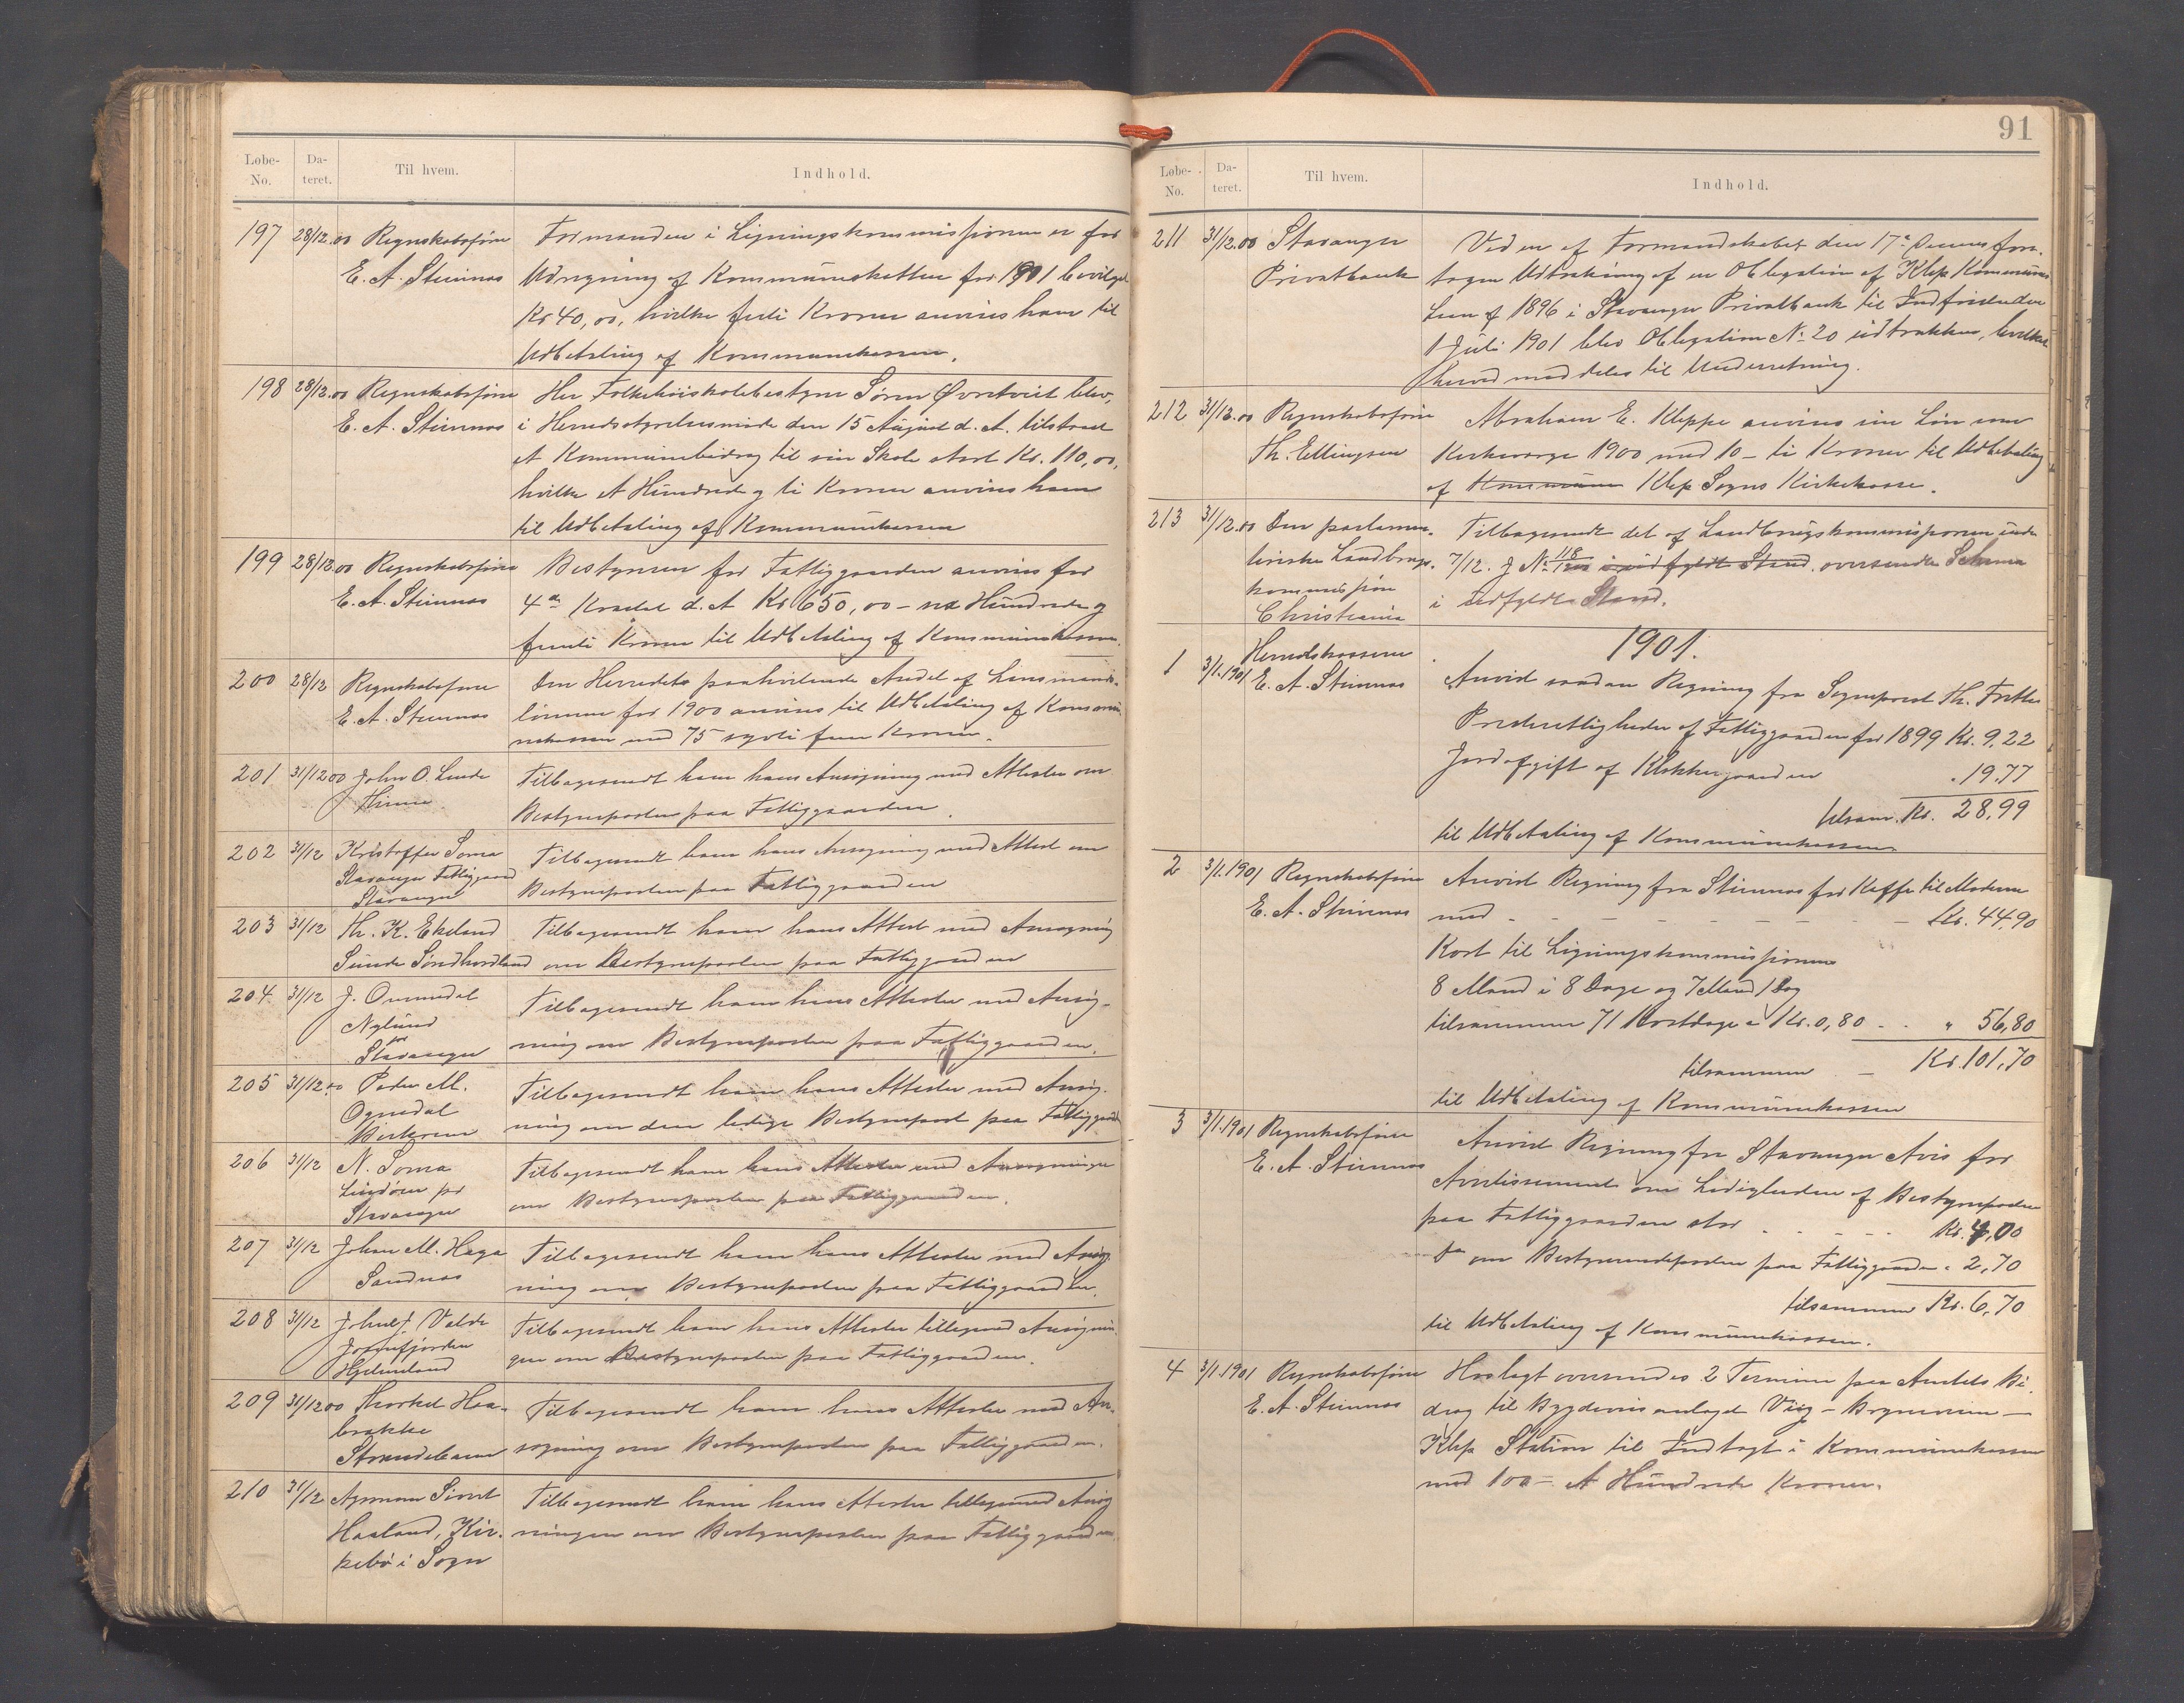 Løbe-No. Da-teret. Til hvem. Indhold.
197 28/12.00 Regnskabsfører Formanden i Ligningskommissionen er for
E. A. Stennes Udregning af Kommuneskatten for 1901 bevilget
Kr 40,00, hvilke førti Kroner anvises ham til
Udbetaling af Kommunekassen.
198 28/12.00 Regnskabsfører Herr Folkehøiskolebestyrer Sören Øvretveit blev,
E. A. Stennes i Herredsstyrelsesmøde den 15 August d. A. tilstaaet
et Kommunebidrag til sin Skole stort Kr. 110,00,
hvilke et Hundrede og ti Kroner anvises ham
til Udbetaling af Kommunekassen
199 28/12.00 Regnskabsfører Bestyreren for Fattiggaarden anvises for
E. A. Stennes 4de Kvartal d. A Kr 650,00 – sex Hundrede og
femti Kroner til Udbetaling af Kommunekassen.
200 28/12 Regnskabsfører Den Herredets paahvilende Andel af Lensmands-
E. A. Stennes lönnen for 1900 anvises til Udbetaling af Kommu-
nekassen med 75 sytti fem Kroner.
201 31/12 00 John O. Lende Tilbagesendt ham hans Ansögning med Attester om
Hinna Bestyrerposten paa Fattiggaarden.
202 31/12 Kristoffer Soma Tilbagesendt ham hans Ansøgning med Attest om
Stavanger Fattiggaard Bestyrerposten paa Fattiggaarden
Stavanger
203 31/12 Th. K. Ekeland Tilbagesendt ham hans Attest med Ansøgning
Sunde Søndhordland om Bestyrerposten paa Fattiggaarden
204. 31/12 J. Ommedal Tilbagesendt ham hans Attester med Ansøg-
Nylund ning om Bestyrerposten paa Fattiggaarden.
pr
Stavanger
205 31/12.00 Peder M. Tilbagesendt ham hans Attester med Ansøg-
Ognedal ning om den ledige Bestyrerpost paa Fattiggaarden
Bjerkreim
206 31/12 N. Soma Tilbagesendt ham hans Attester med Ansøgningen
Lindöen pr om Bestyrerposten paa Fattiggaarden.
Stavanger
207 31/12 Johan M. Hega Tilbagesendt ham hans Attester med Ansøg-
Sandnes ning om Bestyrerposten paa Fattiggaarden.
208 31/12 Velde Tilbagesendt ham hans Attester tilligemed Ansøgnin-
Jøsenfjorden gen om Bestyrerposten paa Fattiggaarden.
Hjelmeland
209 31/12 00 Thorkel Haa- Tilbagesendt ham hans Attester med An-
brekke søgning om Bestyrerposten paa Fattiggaarden.
Strandebarm
210 31/12 Sivert Tilbagesendt ham hans Attester tilligemed Ansøg
Haaland, Kir- ningen om Bestyrerposten paa Fattiggaarden.
kebö i Sogn
91
Løbe-No. Da-teret. Til hvem. Indhold.
211 31/12.00 Stavanger Ved en af Formandskabet den 17de Dennes fore-
Privatbank tagen Udtrækning af en Obligation af Klep Kommunes
Laan af 1896 i Stavanger Privatbank til Indfrielse den
1 Juli 1901 blev Obligation No 20 udtrukken, hvilket
herved meddeles til Underretning.
212 31/12.00 Regnskabsfører Abraham E. Kleppe anvises sin Løn som
Th. Ellingsen Kirkeverge 1900 med 10 – ti Kroner til Udbetaling
af Kommune Klep Sogns Kirkekasse.
213 31/12.00 Den parlamen- Tilbagesendt det af Landbrugskommissionen under
tariske Landbrugs- 7/12. J No 118/1900 i udfyldt Stand. oversendte Schema
kommission i udfyldt Stand.
Christiania
1901.
1 3/1.1901 Herredskasserer
E. A. Stennes Anvist saadan Regning fra Sogneprest Th.
Presterettigheder af Fattiggaarden for 1899 Kr. 9,22
Jordafgift af Klokkergaarden " 19.77
tilsam. Kr. 28,99
til Udbetaling af Kommunekassen.
2 3/1.1901 Regnskabsfører Anvist Regning fra Stennes for Kaffe til Møderne
E. A. Stennes med - - - - - Kr. 44,90
Kost til Ligningskommissionen
8 Mand i 8 Dage og 7 Mand 1 Dag
tilsammen 71 Kostdage a Kr. 0,80 - - " 56,80
tilsammen – Kr. 101,70
til Udbetaling af Kommunekassen
3 3/1.1901 Regnskabsfører Anvist Regning fra Stavanger Avis for
E. A. Stennes Avertissement om Ledigheden af Bestyrerposten
paa Fattiggaarden stor - - - - - Kr. 4,00
Do om Bestyrerindeposten paa Fattiggaarden " 2,70
tilsammen Kr. 6,70
til Udbetaling af Kommunekassen.
4 3/1.1901 Regnskabsfører Hoslagt oversendes 2 Terminer paa Amtets Bi-
E. A. Stennes drag til Bygdeveisanlæget Vig – Bryneveien –
Klep Station til Indtægt i Kommunekassen
med 100 – et Hundrede Kroner.